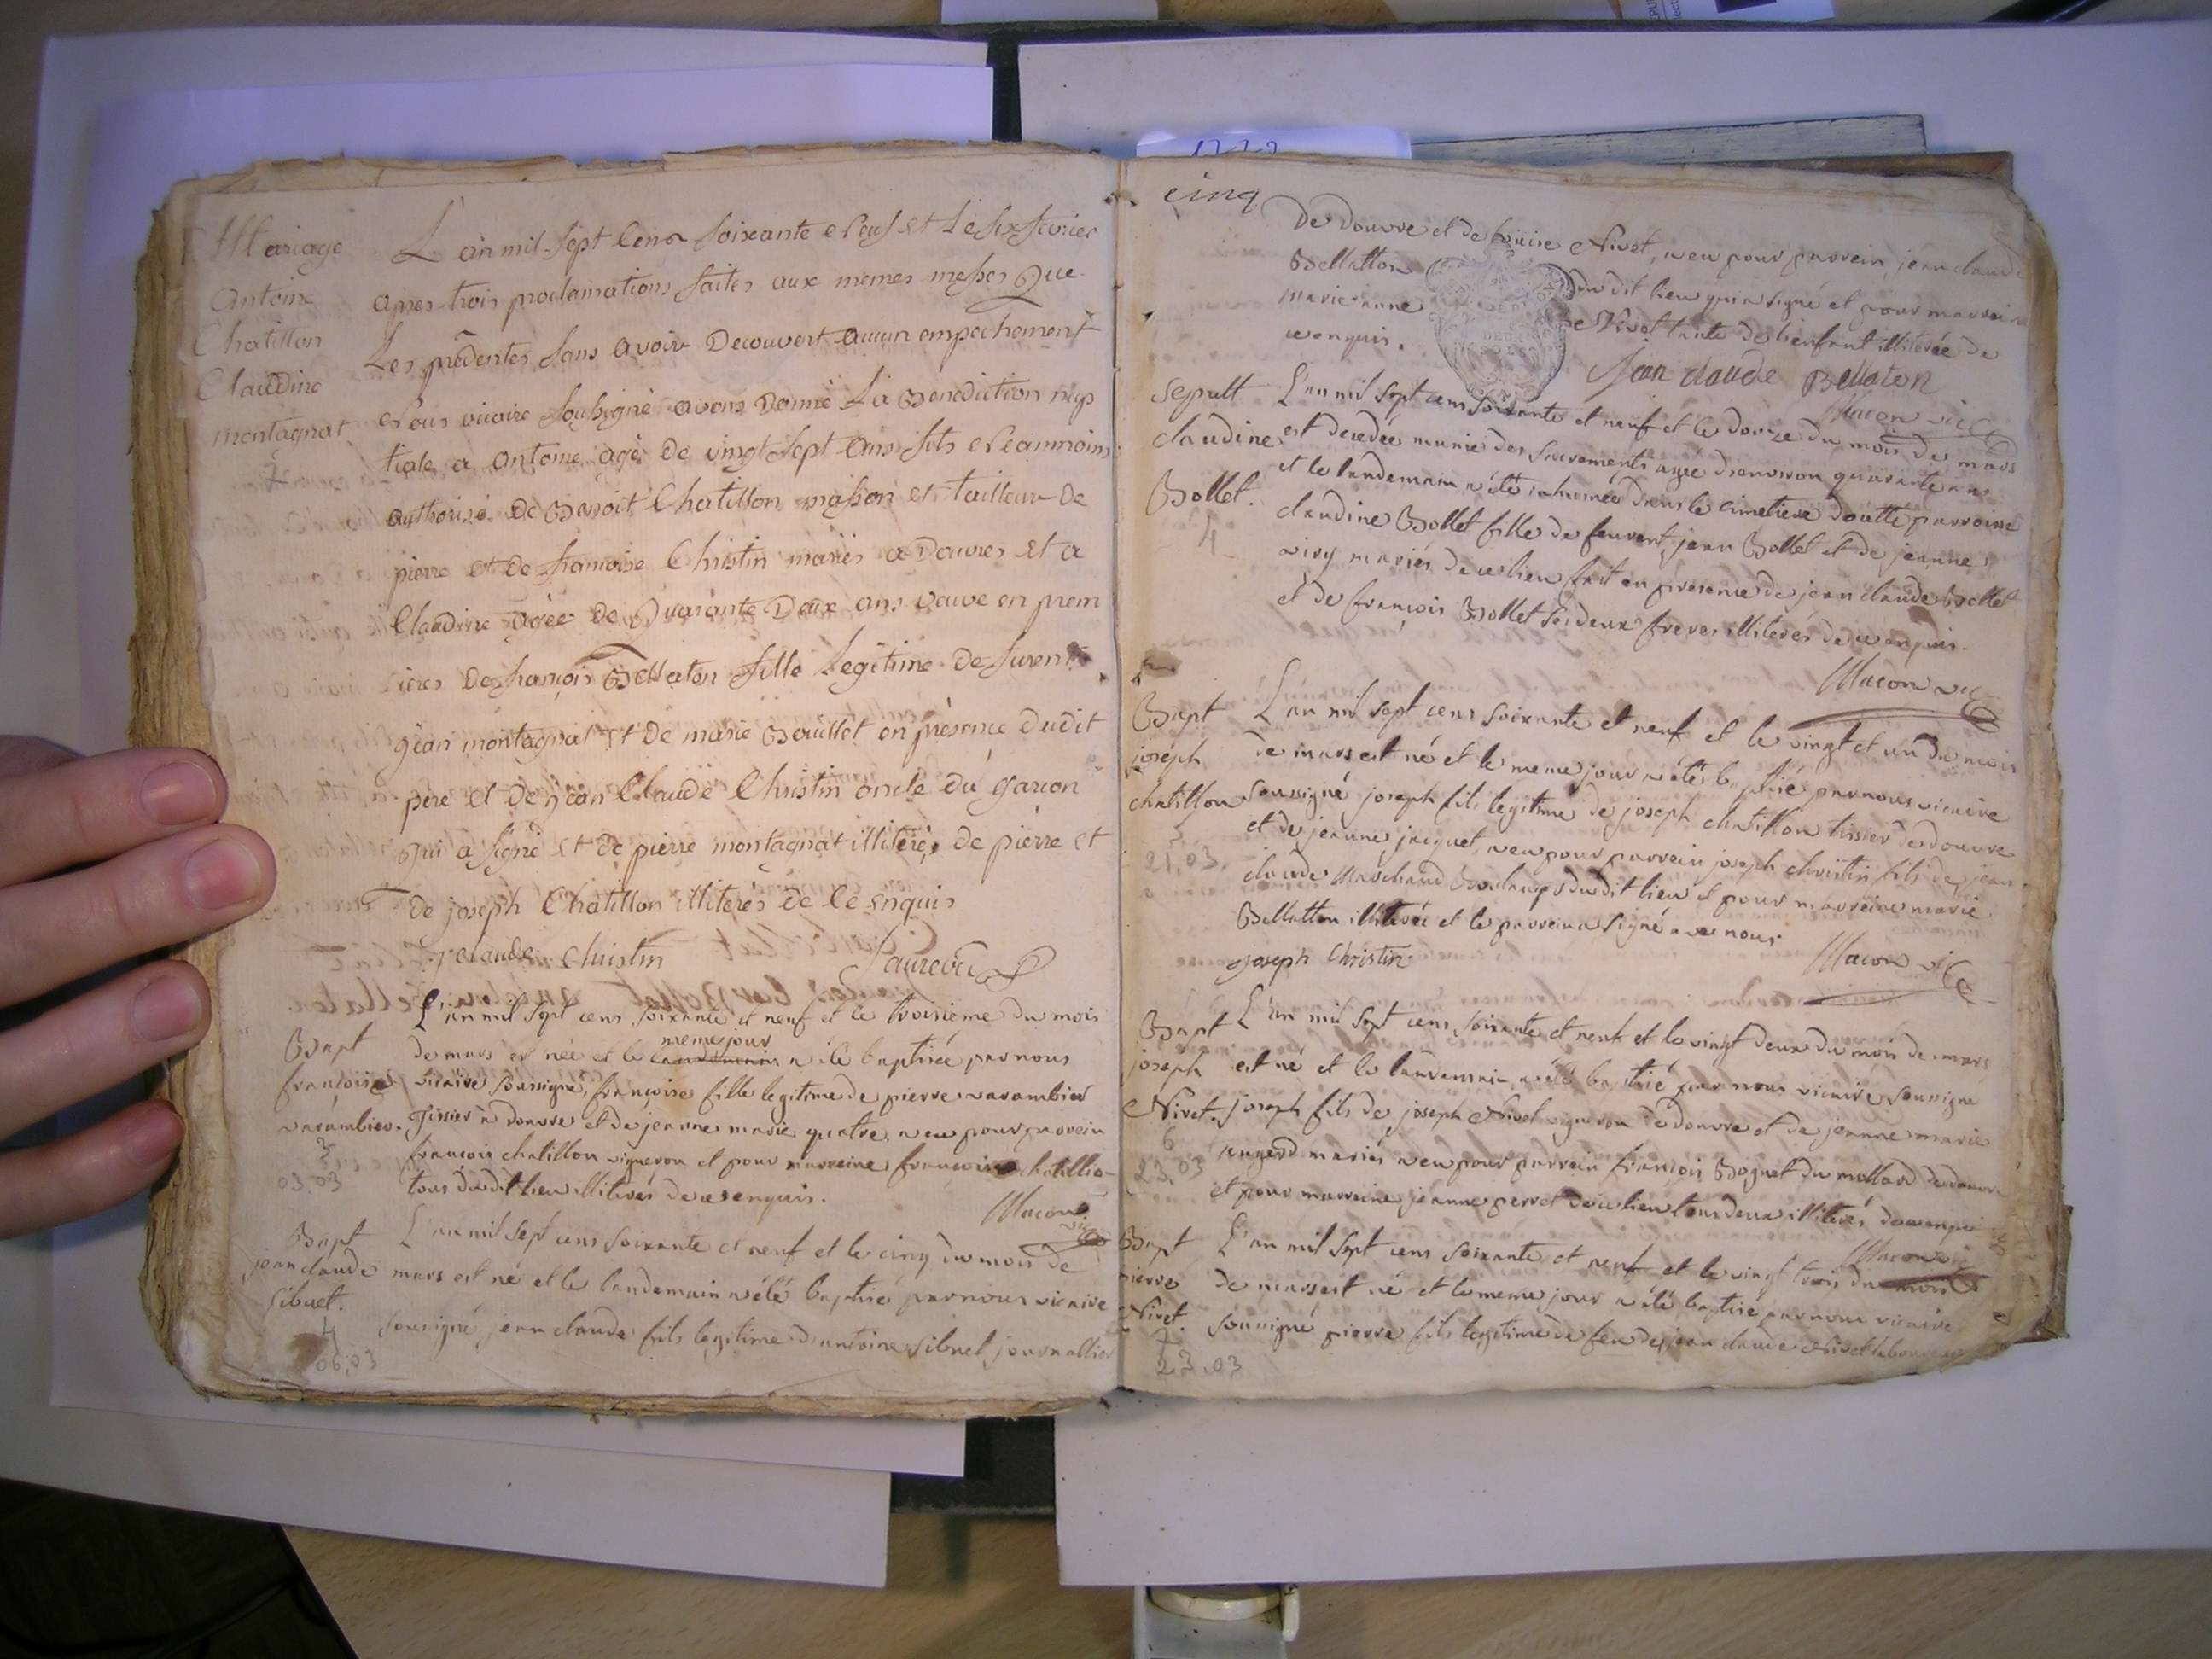 Mariage
Antoine
Chatillon
Claudine
montagnat
2
L'an mil sept Cens soixante et neuf et Le six fevrier
apres trois proclamations faites aux memes messes Que
Les prēdentes sans avoir Decouvert aucun empechement
Nous vicaire soussigné avons Donné La Benediction nup
tiale a antoine agé de vingt sept ans fils neanmoins
authorisé de Benoit Chatillon masson et tailleur de
pierre et de francoise Christin mariés a Douvres et a
Claudine agée de Quarante Deux ans veuve en prem
ieres de francois Bellaton fille Legitime de furent
jean montagnat et De marie Bouillet en présence dudit
pere et De jean Claude Christin oncle du garcon
qui a signé et de pierre montagnat illiteré, de pierre et
de joseph Chatillon illiterés de ce enquis
j claude Christin
Bapt
francoise
varambier.
3
03.03
L'an mil sept cens soixante et neuf et le troisieme du mois
meme jour
de mars est née et le a été baptisée par nous
vicaire soussigné, francoise fille legitime de pierre varambier
tissier a douvre et de jeanne marie quatre, a eu pour parrein
francois chatillon vigneron et pour marreine francoise chatillon
tous dudit lieu illiterés de ce enquis.
Macon vic
Bapt
jean claude
sibuet.
4
06.03
L'an mil sept cens soixante et neuf et le cinq du mois de
mars est né et le landemain a été baptisé par nous vicaire
sousigné jean claude fils legitime d'antoine sibuet journallier
cinq
de Douvre et de Nivet, a eu pour parrein, jean claude
Bellatton dudit lieu qui a signé et pour marreine
marie anne Nivet tante de l'enfant illiterée de
ce enquis.
Jean claude Bellaton
Macon vic
sepult
claudine
Bollet.
4
L'an mil sept cens soixante et neuf et le douze du mois de mars
est decedée munie des sacrements agée d'environ quarante ans
et le landemain a été inhumée dans le cimetiere de cette parroisse
claudine Bollet fille de feurent jean Bollet et de jeanne
mariés de ce lieu fait en presence de jean claude Bollet
et de françois Bollet ses deux freres illiterés de ce enquis.
Macon vic
Bapt
joseph
chatillon
5
21.03.
L'an mil sept cens soixante et neuf et le vingt et un du mois
de mars est né et le meme jour a été baptisé par nous vicaire
sousigné joseph fils legitime de joseph chatillon tissier de douvre
et de jeanne jacquet, a eu pour parrein joseph christin fils de jean
claude Marchand dudit lieu et pour marreine marie
Bellatton illiterée et le parrein a signé avec nous
joseph Christin
Macon vic
Bapt
joseph
Nivet.
6
23.03
L'an mil sept cens soixante et neuf et le vingt deux du mois de mars
est né et le landemain a été baptisé par nous vicaire sousigné
joseph fils de joseph Nivet vigneron de douvre et de jeanne marie
mariés a eu pour parrein francois Bognet du mollard de douvre
et pour marreine jeanne perret de ce lieu tous deux illiterés de ce enquis
Macon vic
Bapt
pierre
Nivet.
7
23.03
L'an mil sept cens soixante et neuf et le vingt trois du mois
de mars est né et le meme jour a été baptisé par nous vicaire
sousigné pierre fils legitime de feu de jean claude Nivet laboureur